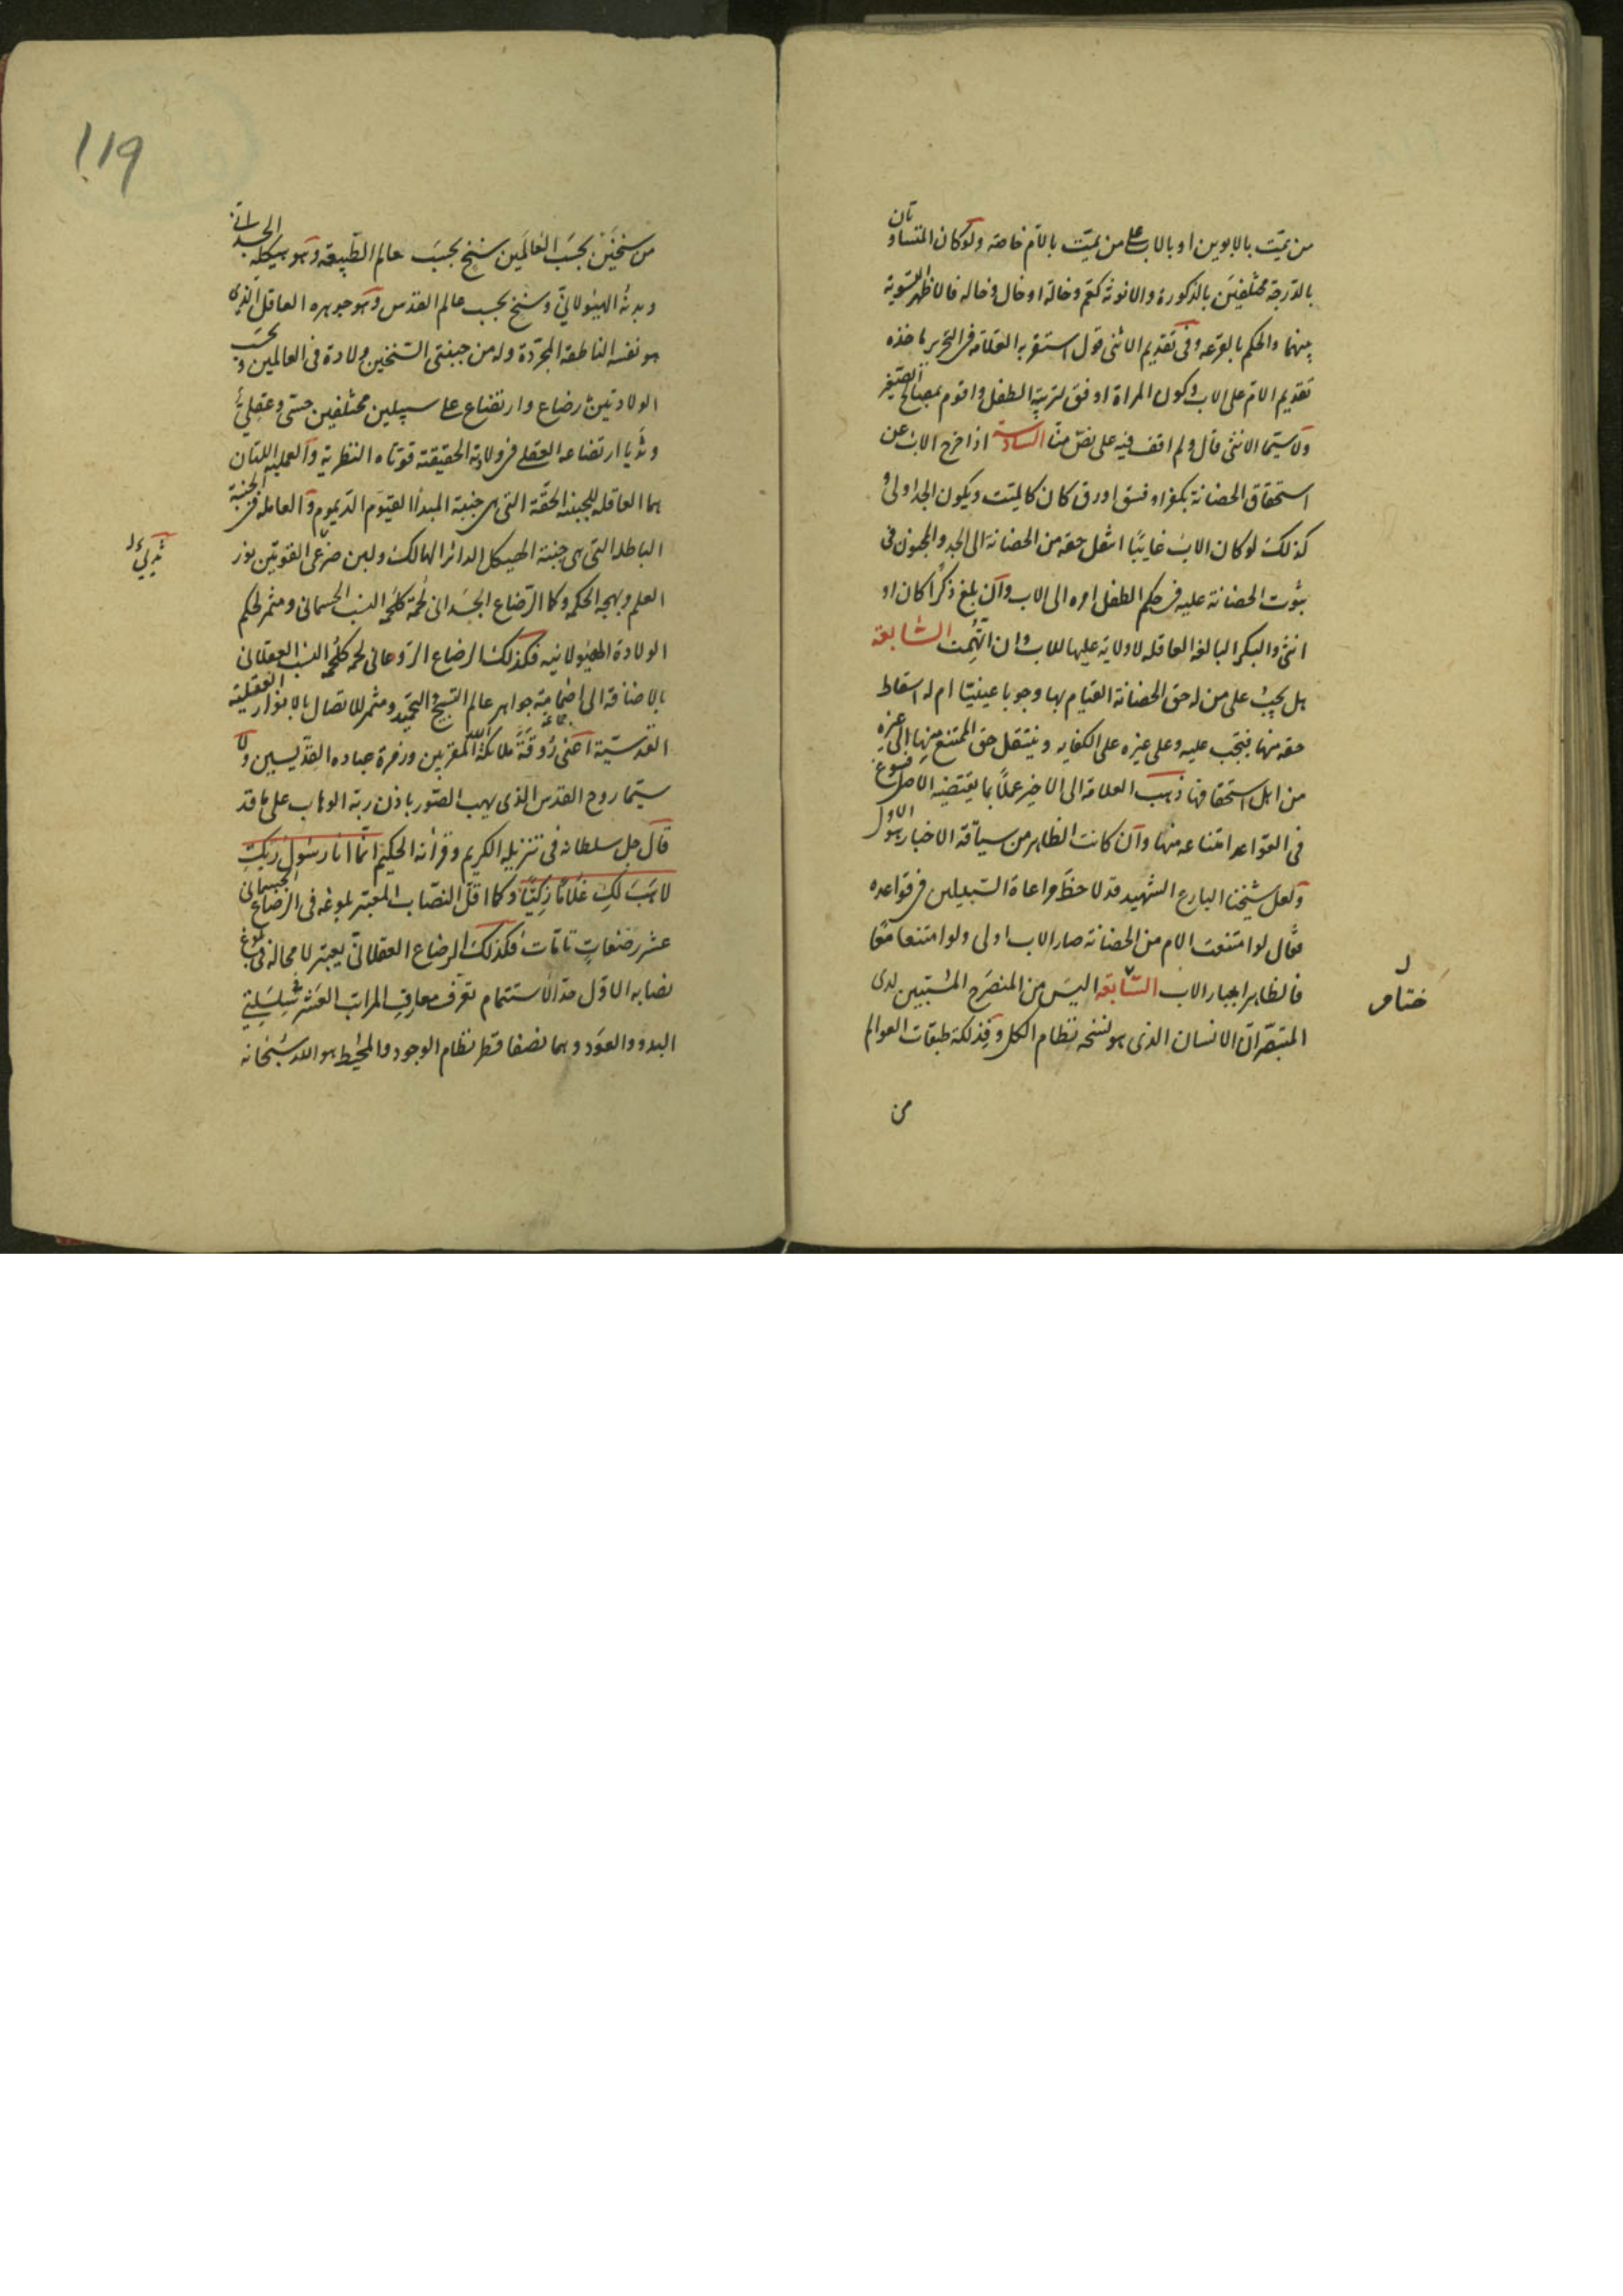 من يمتّ بالابوين او بالاب على من يمتّ بالام خاصة ولو كان المتساويان
بالدرجة مختلفين بالذكورة والانوثة كعم وخالة او خال وخاله فالاظهر التسوية
بينهما والحكم بالقرعه وفى تقديم الانثى قول استقربه العلامة فى التحرير ماخذه
تقديم الام على الاب وكون المراة اوفق لتربية الطفل واقوم بمصالح الصغير
ولا سيما الانثى قال ولم اقف فيه على نص منا السادسة اذا خرج الاب عن
استحقاق الحضانة بكفر او فسق اورق كان كالميت ويكون الجد اولى و
كذلك لو كان الاب غايبا انتقل حقه من الحضانة الى الجد والمجنون فى
ثبوت الحضانة عليه فى حكم الطفل امره الى الاب وان بلغ ذكرا كان او
انثى والبكر البالغه العاقله لا ولاية عليها للاب وان اتهمت السابعة
هل يجب على من له حق الحضانة القيام بها وجوبا عينيا ام له اسقاط
حقه منها فتجب عليه وعلى غيره على الكفايه وينتقل حق الممتنع منها الى غيره
من اهل استحقاقها ذهب العلامة الى الاخير عملا بما يقتضيه الاصل فسوغ
فى القواعد امتناعه منها وان كانت الظاهر من سياقة الاخبار هو الاول
ولعل شيخنا البارع الشهيد قد لاحظ مراعاة السبيلين فى قواعده
فقال لو امتنعت الام من الحضانة صار الاب اولى ولو امتنعا معا
فالظاهر اجبار الاب السابقه اليس من المنصرح المستبين لدى
المتبصر ان الانسان الذى هو نسخه نظام الكل وفذلكة طبقات العوالم
من
ختام
119
من سنخين بحسب العالمين سنخ بحسب عالم الطبيعه وهو هيكله الجسدانى
وبدنه الهيولانى وسنخ بحسب عالم القدس وهو جوهره العاقل الذى
هو نفسه الناطقه المجردة وله من جبنتى السنخين ولادة فى العالمين وبحسب
الولادتين رضاع وارتضاع على سبيلين مختلفين حسى وعقلى
وثديا ارتضاعه العقلى فى ولادته الحقيقته قوتاه النظرية والعمليه اللتان
هما العاقله للجبنه الحقة التى هى جنبة المبدا القيوم الديموم والعامله فى الجنبة
الباطله التى هى جنبة الهيكل الداثر الهالك ولبن ضرعى القوتين نور
العلم وبهجه الحكمه وكما الرضاع الجسدانى لحمة كلحمه النسب الجسمانى ومثمر لحكم
الولادة الهيولانيه فكذلك الرضاع الروعانى لحمه كلحمه النسب العقلانى
بالاضافة الى اضمامة جواهر عالم التسبيح والتحميد ومثمر للاتصال بالانوار العقلية
القدسية اعنى روقة ملائكة الله المقربين وزمرة عباده القديسين ولا
سيما روح القدس الذى يهب الصور باذن ربه الوهاب على ما قد
قال جل سلطانه فى تنزيله الكريم وقرانه الحكيم انما انا رسول ربك
لاهب لك غلاما زكيا وكما اقل النصاب المعتبر بلوغه فى الرضاع الجسمانى
عشر رضعات تامات فكذلك الرضاع العقلانى يعتبر لا محالة فى بلوغ
نصابه الاول حد الاستتمام تعرف معارف المراتب العشر لسلسلتى
البدو والعود وهما نصفا قطر نظام الوجود والمحيط هو الله سبحانه